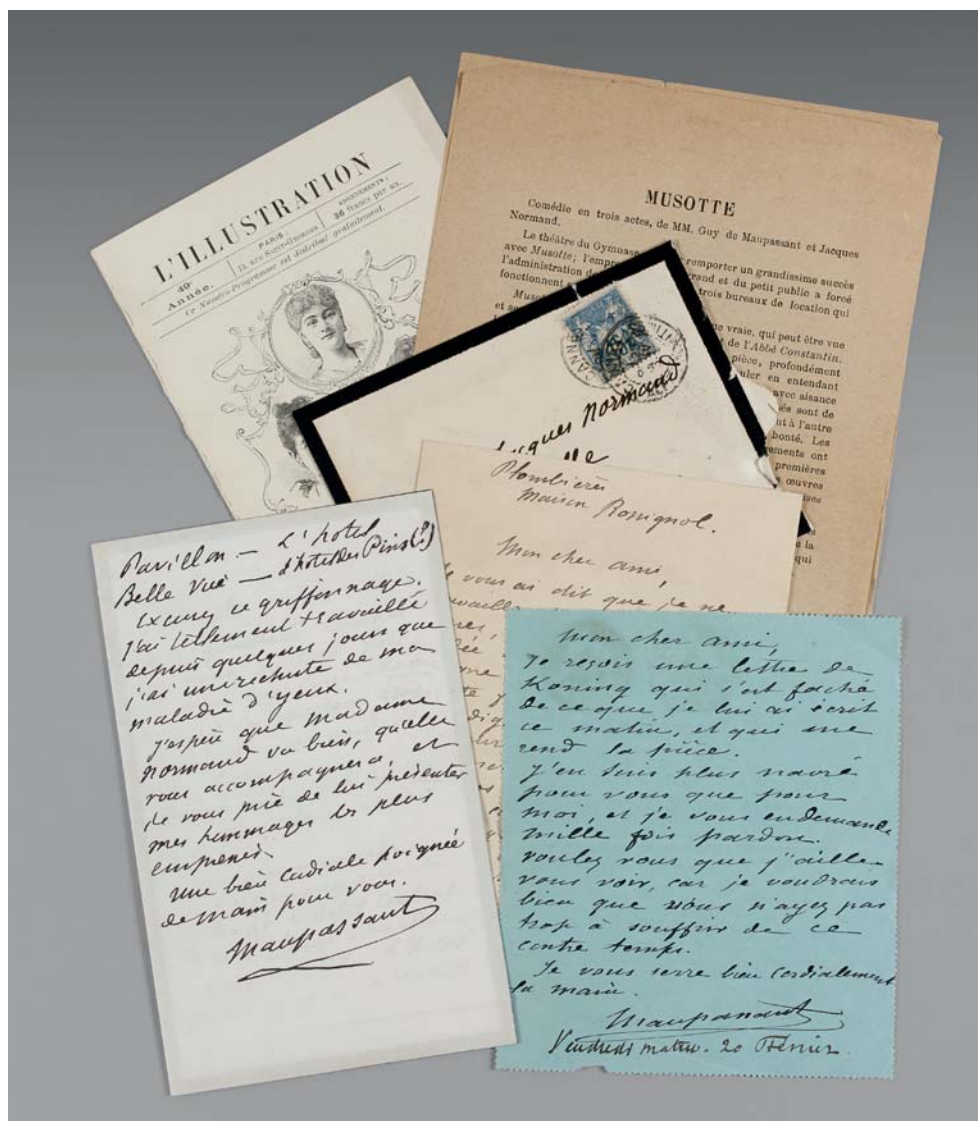 L'ILLUSTRATION
PARIS :
13, RUE SAINT-GEORGES
ABONNEMENTS :
36 francs par an.
49e
Année.
Ce Numéro-Programme est distribué gratuitement.
MUSOTTE
Comédie en trois actes, de MM. Guy de Maupassant et Jacques
Normand.
Le théâtre du Gymnase remporter un grandissime succès
avec Musotte; l'empre rand et du petit public a forcé
l'administration de trois bureaux de location qui
fonctionnent
Musot ne vraie, qui peut être vue
et se de l'Abbé Constantin.
pièce, profondément
uler en entendant
avec aisance
és sont de
ut à l'autre
bonté. Les
gements ont
premières
œuvres
la
qui
CANNES
cques Normand
Plombières
Maison Rossignol.
Mon cher ami,
Je vous ai dit que je ne
Pavillon — L'hotel
Belle Vue — d'hotel des Pins (?)
Excusez ce griffonnage.
J'ai tellement travaillé
depuis quelques jours que
j'ai une rechute de ma
maladie d'yeux.
J'espère que Madame
Normand va bien, qu'elle
vous accompagnera, et
je vous prie de lui présenter
mes hommages les plus
empressés.
Une bien cordiale poignée
de main pour vous.
Maupassant
Mon cher ami,
Je reçois une lettre de
Koning qui s'est faché
de ce que je lui ai écrit
ce matin, et qui me
rend la pièce.
J'en suis plus navré
pour vous que pour
moi, et je vous en demande
mille fois pardon.
Voulez vous que j'aille
vous voir, car je voudrais
bien que vous n'ayez pas
trop à souffrir de ce
contre temps.
Je vous serre bien cordialement
la main.
Maupassant
Vendredi matin. 20 Février